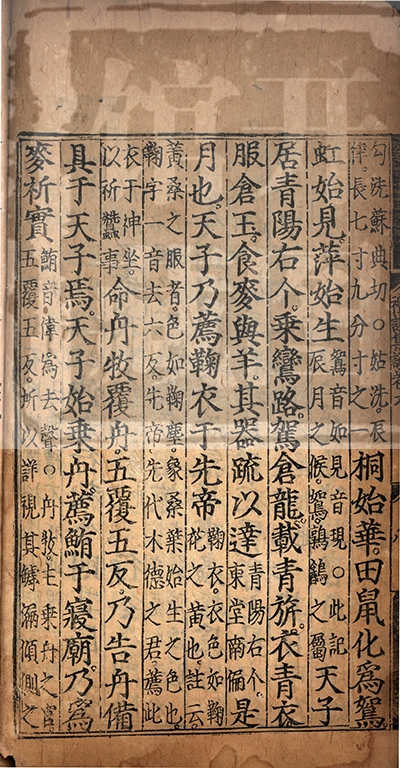 勾洗蘇典切○姑洗。辰
律長七寸九分寸之一
桐始華。田鼠化爲鴽
虹始見。萍始生
鴽音如見音現○此記
辰月之候。鴽鶉鷃之屬
天子
居青陽右个。乘鸞路。駕倉龍。載青旂。衣青衣。
服倉玉。食麥與羊。其器疏以達
青陽右个。
東堂南偏
是
月也。天子乃薦鞠衣于先帝
鞠衣。衣色如鞠
花之黃也。註云。
黃桑之服者。色如鞠塵。象桑葉始生之色也
鞠字一音去六反。先帝。先代木德之君。薦此
衣于神坐。
以祈蠶事
命舟牧覆舟。五覆五反。乃告舟備
具于天子焉。天子始乘舟。薦鮪于寢廟。乃爲
麥祈實
鮪音偉爲去聲○舟牧。主乘舟之官。
五覆五反。所以詳視其罅漏傾側之